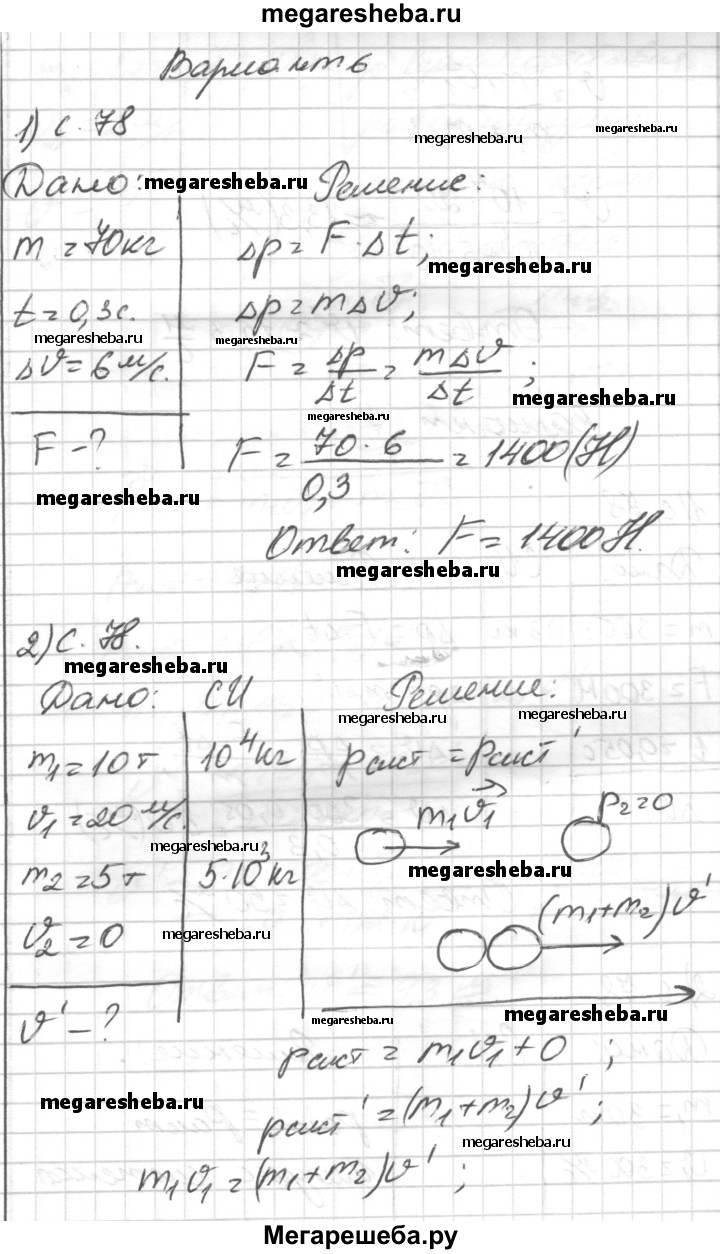 megaresheba.ru
Вариант 6
1) с. 78
megaresheba.ru
megaresheba.ru
Дано: megaresheba.ru Решение:
m = 70 кг
Δp = F · Δt;
megaresheba.ru
t = 0,3 с.
Δp = mΔϑ;
megaresheba.ru
megaresheba.ru
Δϑ = 6 м/с.
F = Δp/Δt = mΔϑ/Δt;
megaresheba.ru
megaresheba.ru
F - ?
F = 70 · 6/0,3 = 1400 (Н)
megaresheba.ru
Ответ: F = 1400 Н.
megaresheba.ru
2) с. 78.
megaresheba.ru
Дано: СИ Решение:
megaresheba.ru
megaresheba.ru
m₁ = 10 т 10⁴ кг pсист = pсист'
ϑ₁ = 20 м/с.
m₁ϑ₁ p₂ = 0
megaresheba.ru
megaresheba.ru
m₂ = 5 т 5 · 10³ кг
ϑ₂ = 0
megaresheba.ru
(m₁+m₂)ϑ'
ϑ' - ?
megaresheba.ru
megaresheba.ru
pсист = m₁ϑ₁ + 0 ;
megaresheba.ru
pсист' = (m₁+m₂)ϑ' ;
megaresheba.ru
m₁ϑ₁ = (m₁+m₂)ϑ' ;
Мегарешеба.ру